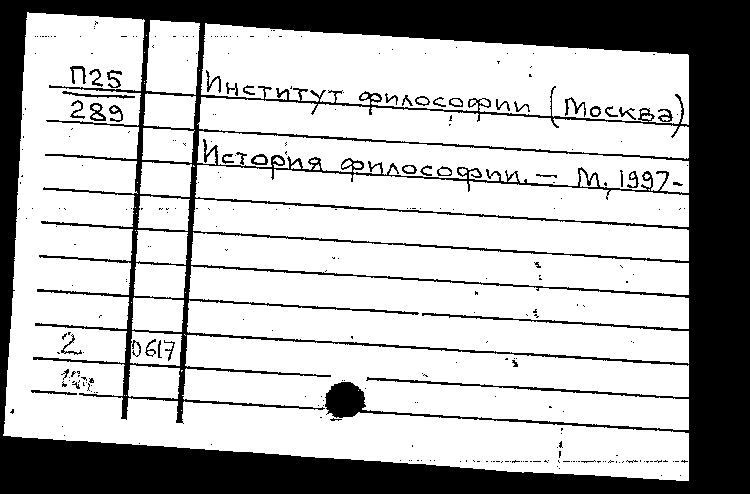 П25
289
Институт философии (Москва)
История философии. — М., 1997-
2
0617